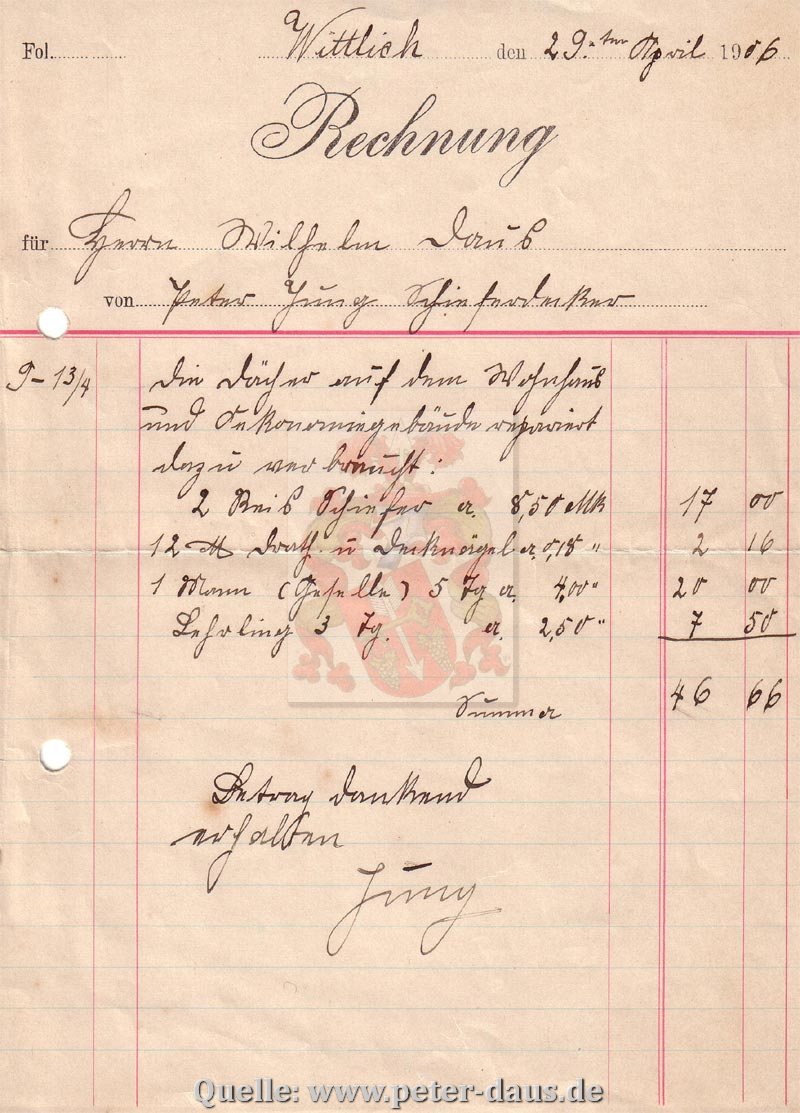 Fol. Wittlich den 29.ten April 1906
Rechnung
für Herrn Wilhelm Daus
von Peter Jung Schieferdecker
9-13/4 Die Dächer auf dem Wohnhaus
und Oekonomiegebäude repariert
dazu verbraucht:
2 Reis Schiefer a. 8,50 Mk 17 00
12 ℔ Drath u Decknägel a. 0,18 " 2 16
1 Mann (Geselle) 5 Tg a. 4,00 " 20 00
Lehrling 3 Tg. a. 2,50 " 7 50
Summa 46 66
Betrag dankend
erhalten
Jung
Quelle: www.peter-daus.de